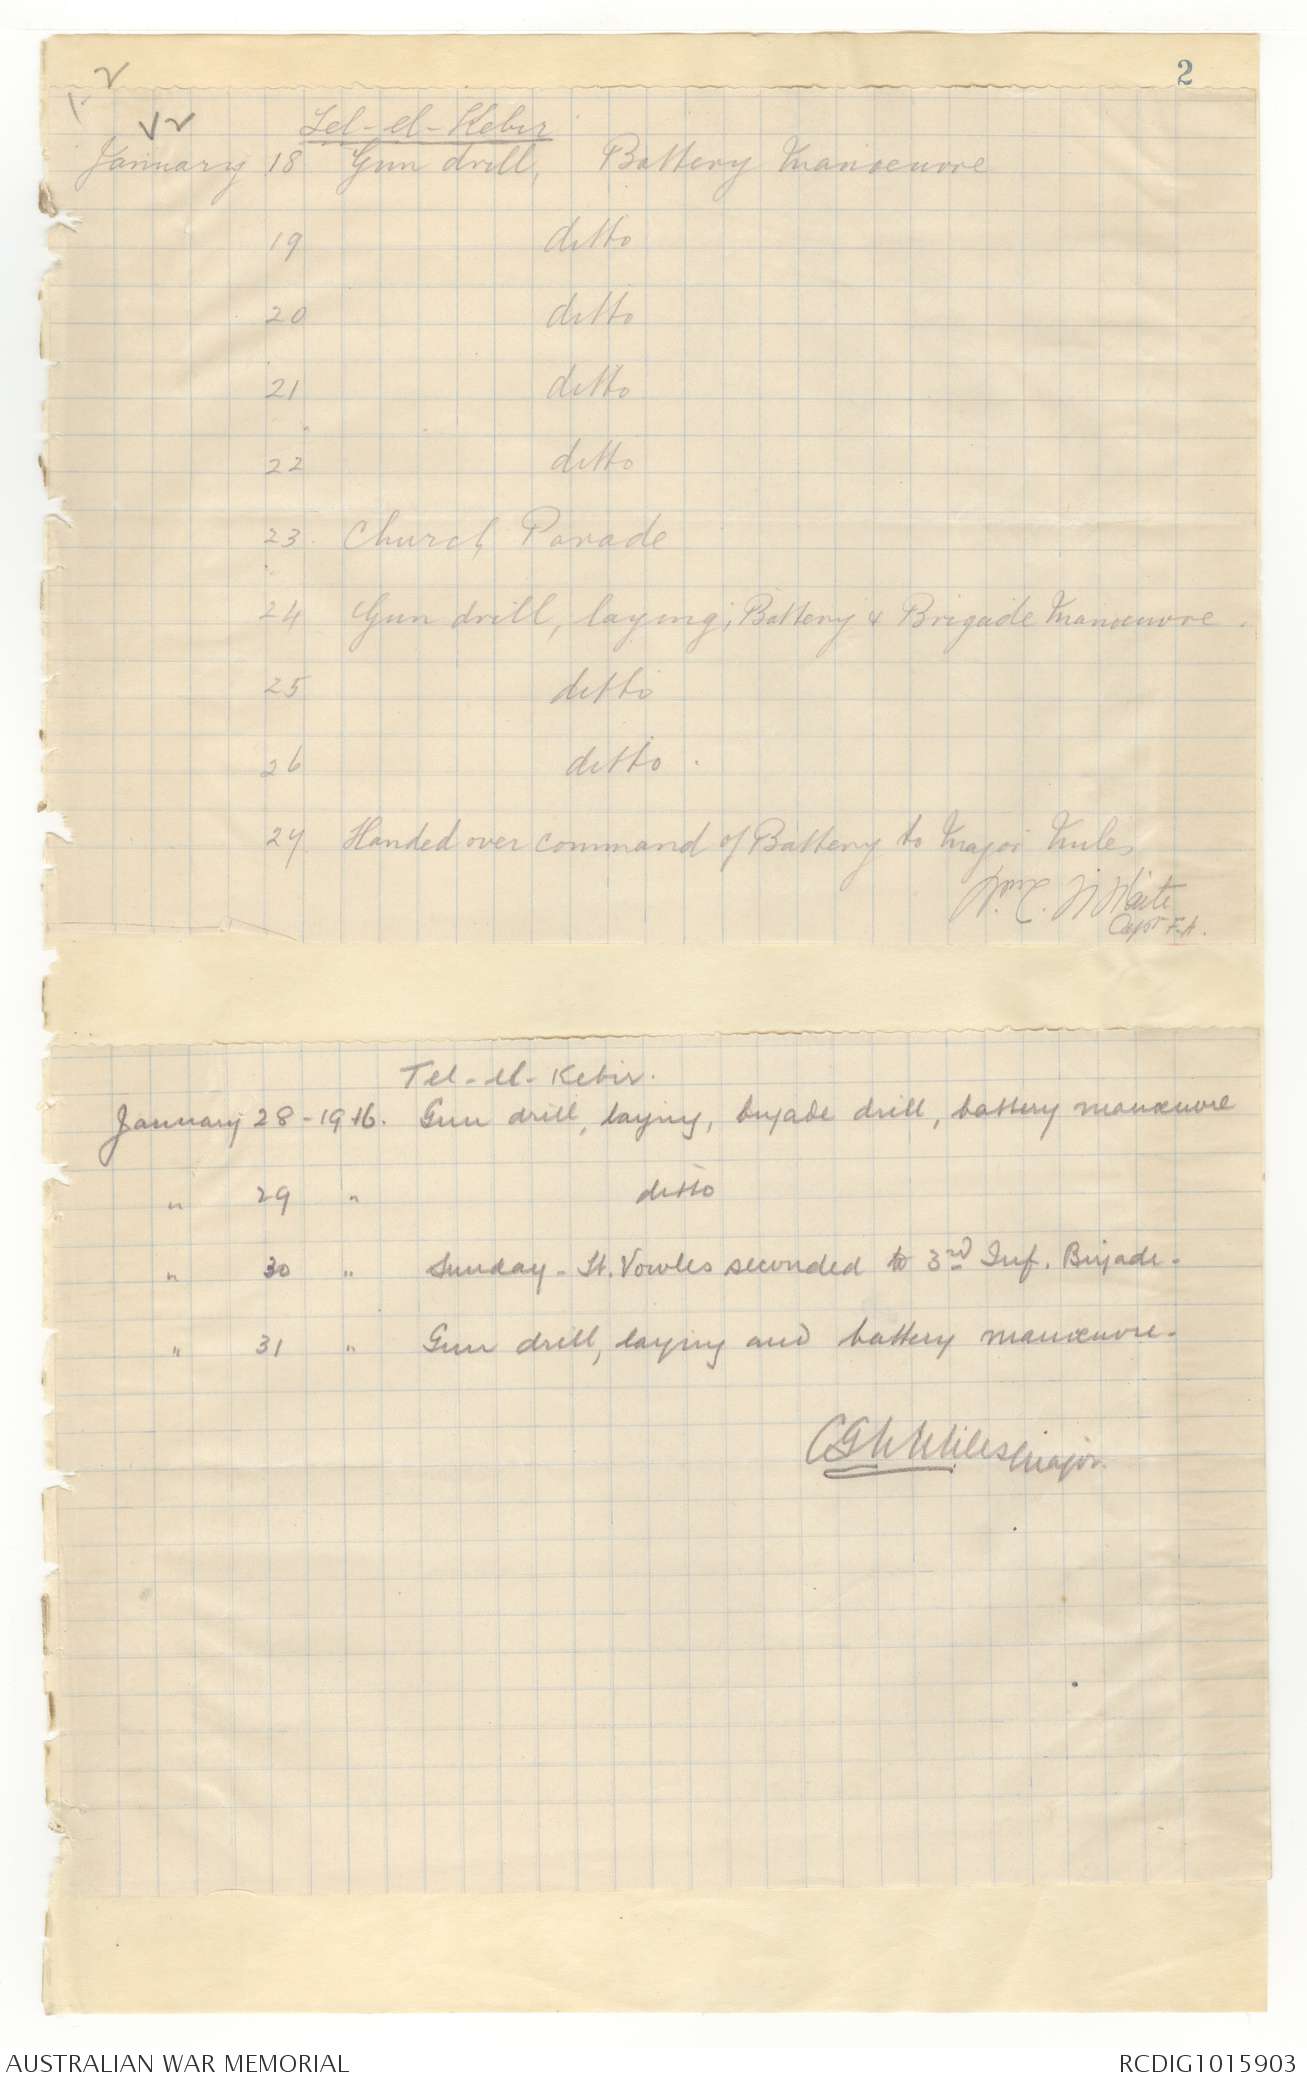 2
Tel-el-Kebir
January 18 Gun drill, Battery Manoeuvre
19 ditto
20 ditto
21 ditto
22 ditto
23 Church Parade
24 Gun drill, laying, Battery & Brigade Manoeuvre.
25 ditto
26 ditto.
27 Handed over command of Battery to Major Miles
Wm. C. N. Waite
Capt F.A.
Tel-el-Kebir.
January 28-1916. Gun drill, laying, brigade drill, battery manoeuvre
" 29 " ditto
" 30 " Sunday - Lt. Vowles seconded to 3rd Inf. Brigade.
" 31 " Gun drill, laying and battery manoeuvre.
CGN Miles Major.
AUSTRALIAN WAR MEMORIAL RCDIG1015903